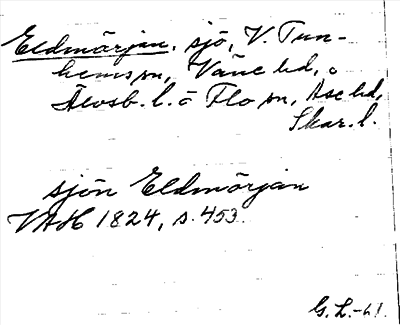 Eldmörjan, sjö, V. Tun-
hems sn, Väne hd, o
Älvsb. l. o Flo sn, Åse hd,
Skar. l.
sjön Eldmörjan
VAH 1824, s. 453.
G. L. -61.